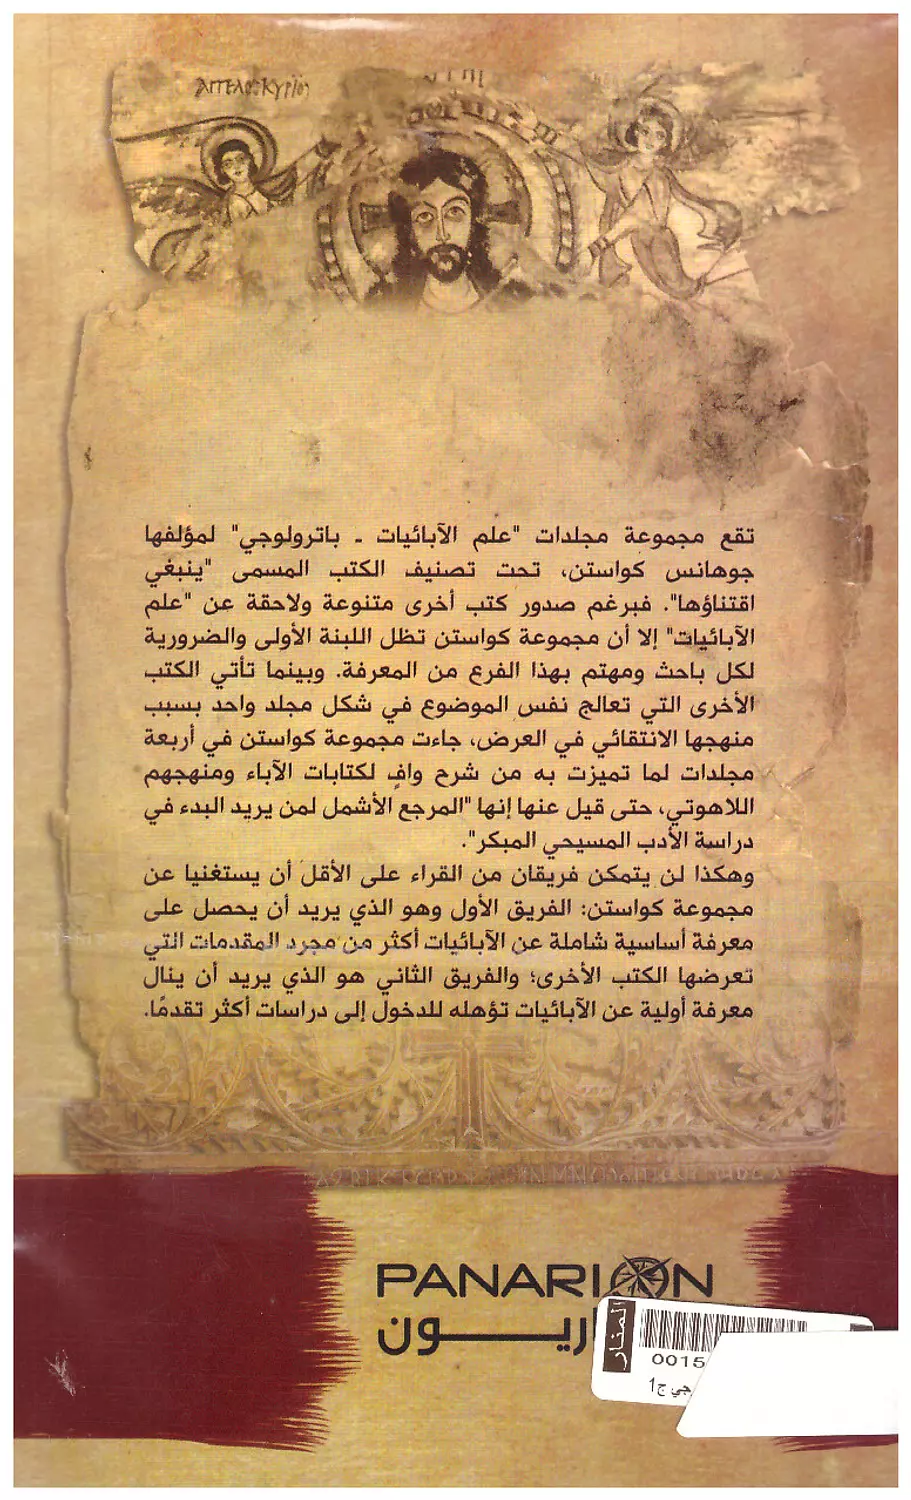 ΑΓΓΕΛΟΣ ΚΥΡΙΟΥ
تقع مجموعة مجلدات "علم الآبائيات - باترولوجي" لمؤلفها
جوهانس كواستن، تحت تصنيف الكتب المسمى "ينبغي
اقتناؤها". فبرغم صدور كتب أخرى متنوعة ولاحقة عن "علم
الآبائيات" إلا أن مجموعة كواستن تظل اللبنة الأولى والضرورية
لكل باحث ومهتم بهذا الفرع من المعرفة. وبينما تأتي الكتب
الأخرى التي تعالج نفس الموضوع في شكل مجلد واحد بسبب
منهجها الانتقائي في العرض، جاءت مجموعة كواستن في أربعة
مجلدات لما تميزت به من شرح وافٍ لكتابات الآباء ومنهجهم
اللاهوتي، حتى قيل عنها إنها "المرجع الأشمل لمن يريد البدء في
دراسة الأدب المسيحي المبكر".
وهكذا لن يتمكن فريقان من القراء على الأقل أن يستغنيا عن
مجموعة كواستن: الفريق الأول وهو الذي يريد أن يحصل على
معرفة أساسية شاملة عن الآبائيات أكثر من مجرد المقدمات التي
تعرضها الكتب الأخرى؛ والفريق الثاني هو الذي يريد أن ينال
معرفة أولية عن الآبائيات تؤهله للدخول إلى دراسات أكثر تقدمًا.
PANARION
ريـــون
المنار
0015
جي ج1